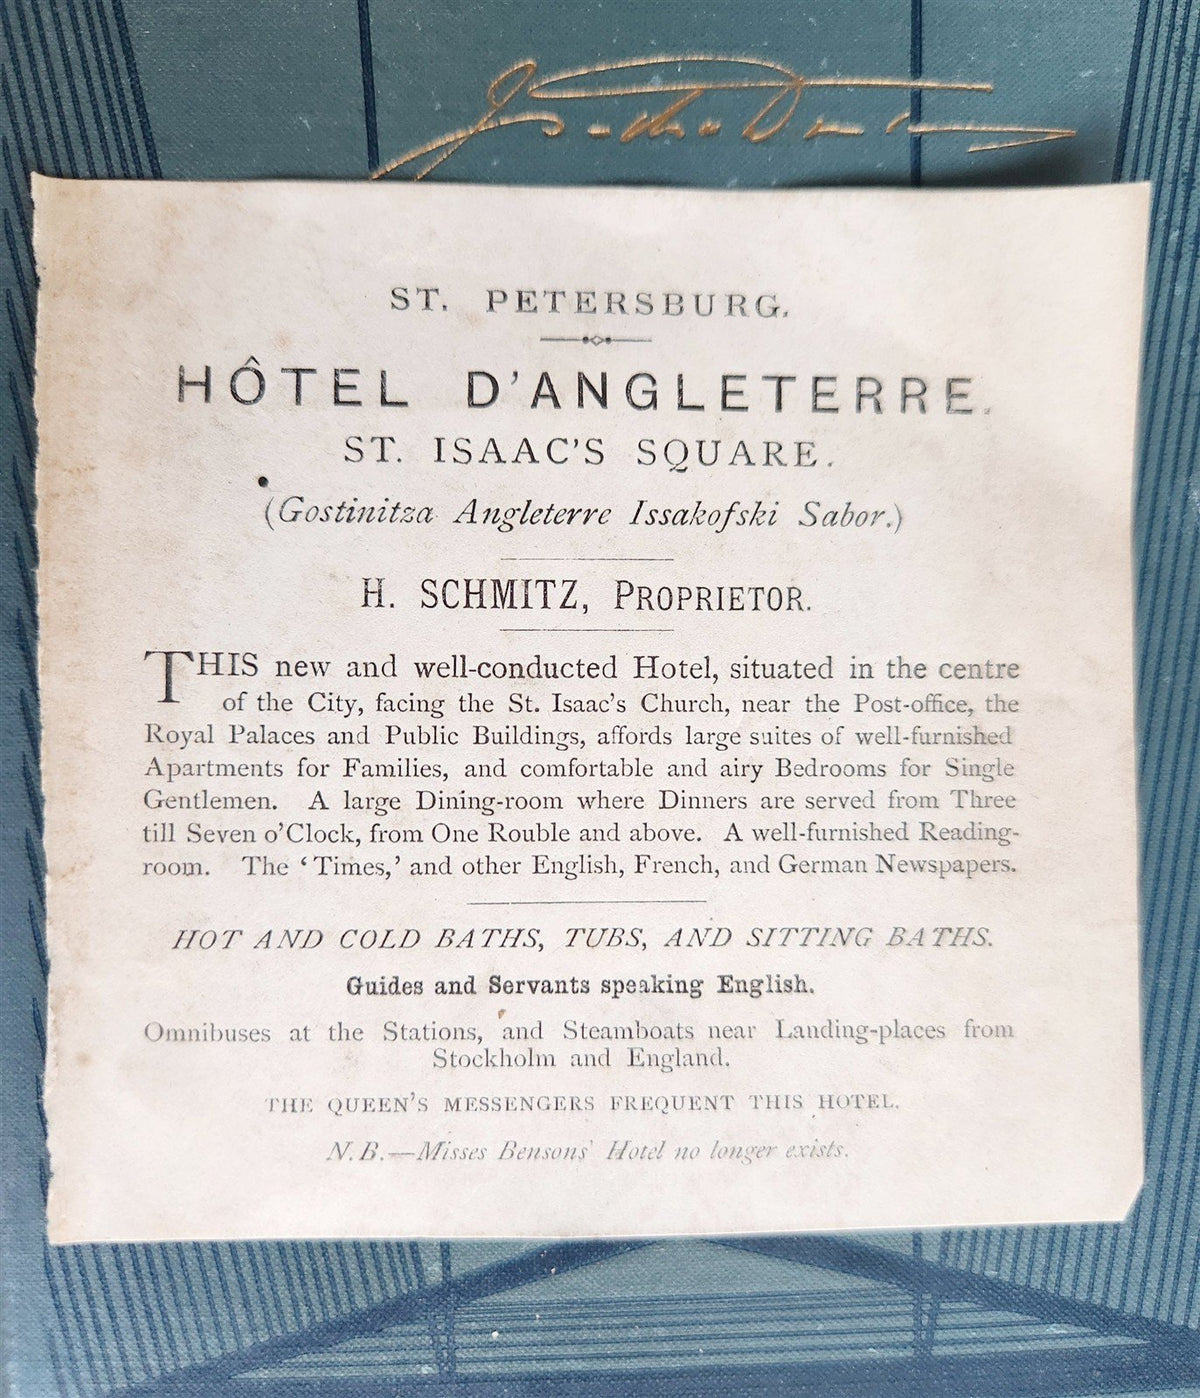 ST. PETERSBURG.
HÔTEL D'ANGLETERRE.
ST. ISAAC'S SQUARE.
(Gostinitza Angleterre Issakofski Sabor.)
H. SCHMITZ, PROPRIETOR.
THIS new and well-conducted Hotel, situated in the centre
of the City, facing the St. Isaac's Church, near the Post-office, the
Royal Palaces and Public Buildings, affords large suites of well-furnished
Apartments for Families, and comfortable and airy Bedrooms for Single
Gentlemen. A large Dining-room where Dinners are served from Three
till Seven o'Clock, from One Rouble and above. A well-furnished Reading-
room. The ‘Times,’ and other English, French, and German Newspapers.
HOT AND COLD BATHS, TUBS, AND SITTING BATHS.
Guides and Servants speaking English.
Omnibuses at the Stations, and Steamboats near Landing-places from
Stockholm and England.
THE QUEEN'S MESSENGERS FREQUENT THIS HOTEL.
N.B.—Misses Bensons' Hotel no longer exists.